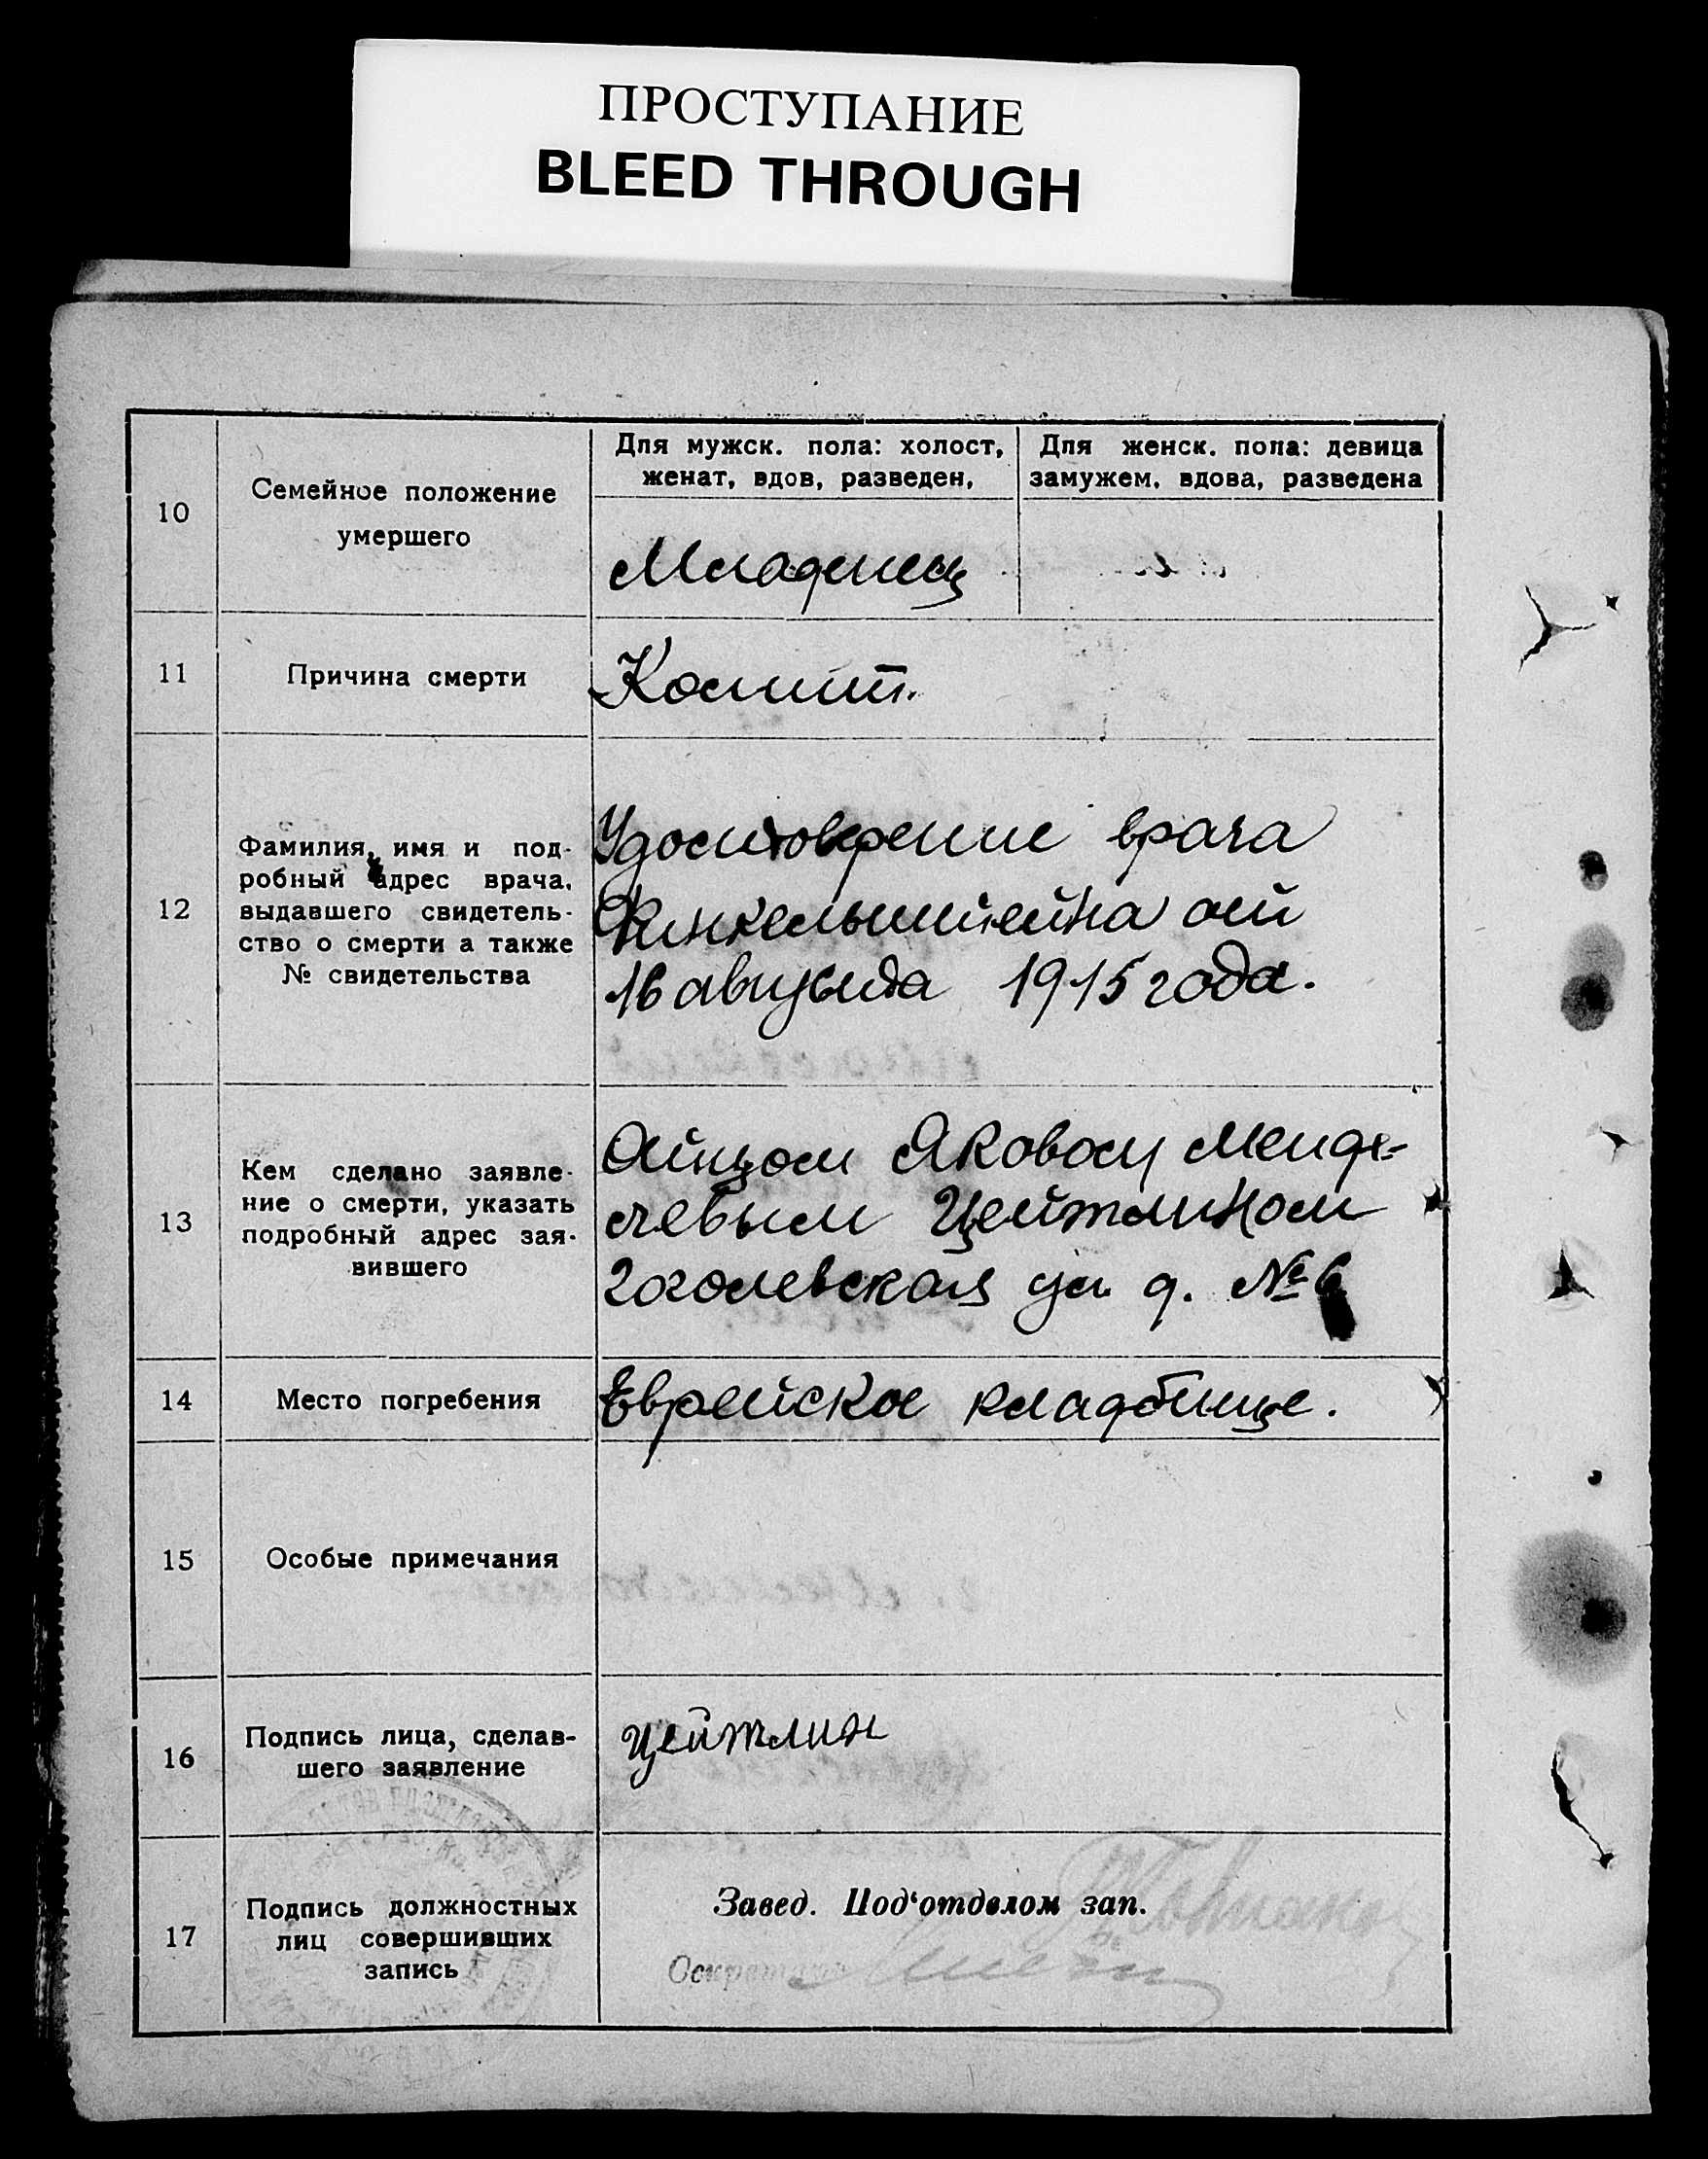 ПРОСТУПАНИЕ
BLEED THROUGH
10
Семейное положение
умершего
Для мужск. пола: холост,
женат, вдов, разведен,
Для женск. пола: девица
замужем, вдова, разведена
Младенец
11
Причина смерти
Колит.
12
Фамилия, имя и под-
робный адрес врача,
выдавшего свидетель-
ство о смерти а также
№ свидетельства
Удостоверение врача
Финкельштейна от
16 августа 1915 года.
13
Кем сделано заявле-
ние о смерти, указать
подробный адрес зая-
вившего
Отцом Яковом Менде-
левым Цейтлином
Гоголевская ул д. № 6
14
Место погребения
Еврейское кладбище.
15
Особые примечания
16
Подпись лица, сделав-
шего заявление
Цейтлин
17
Подпись должностных
лиц совершивших
запись
Завед. Под‘отделом зап.